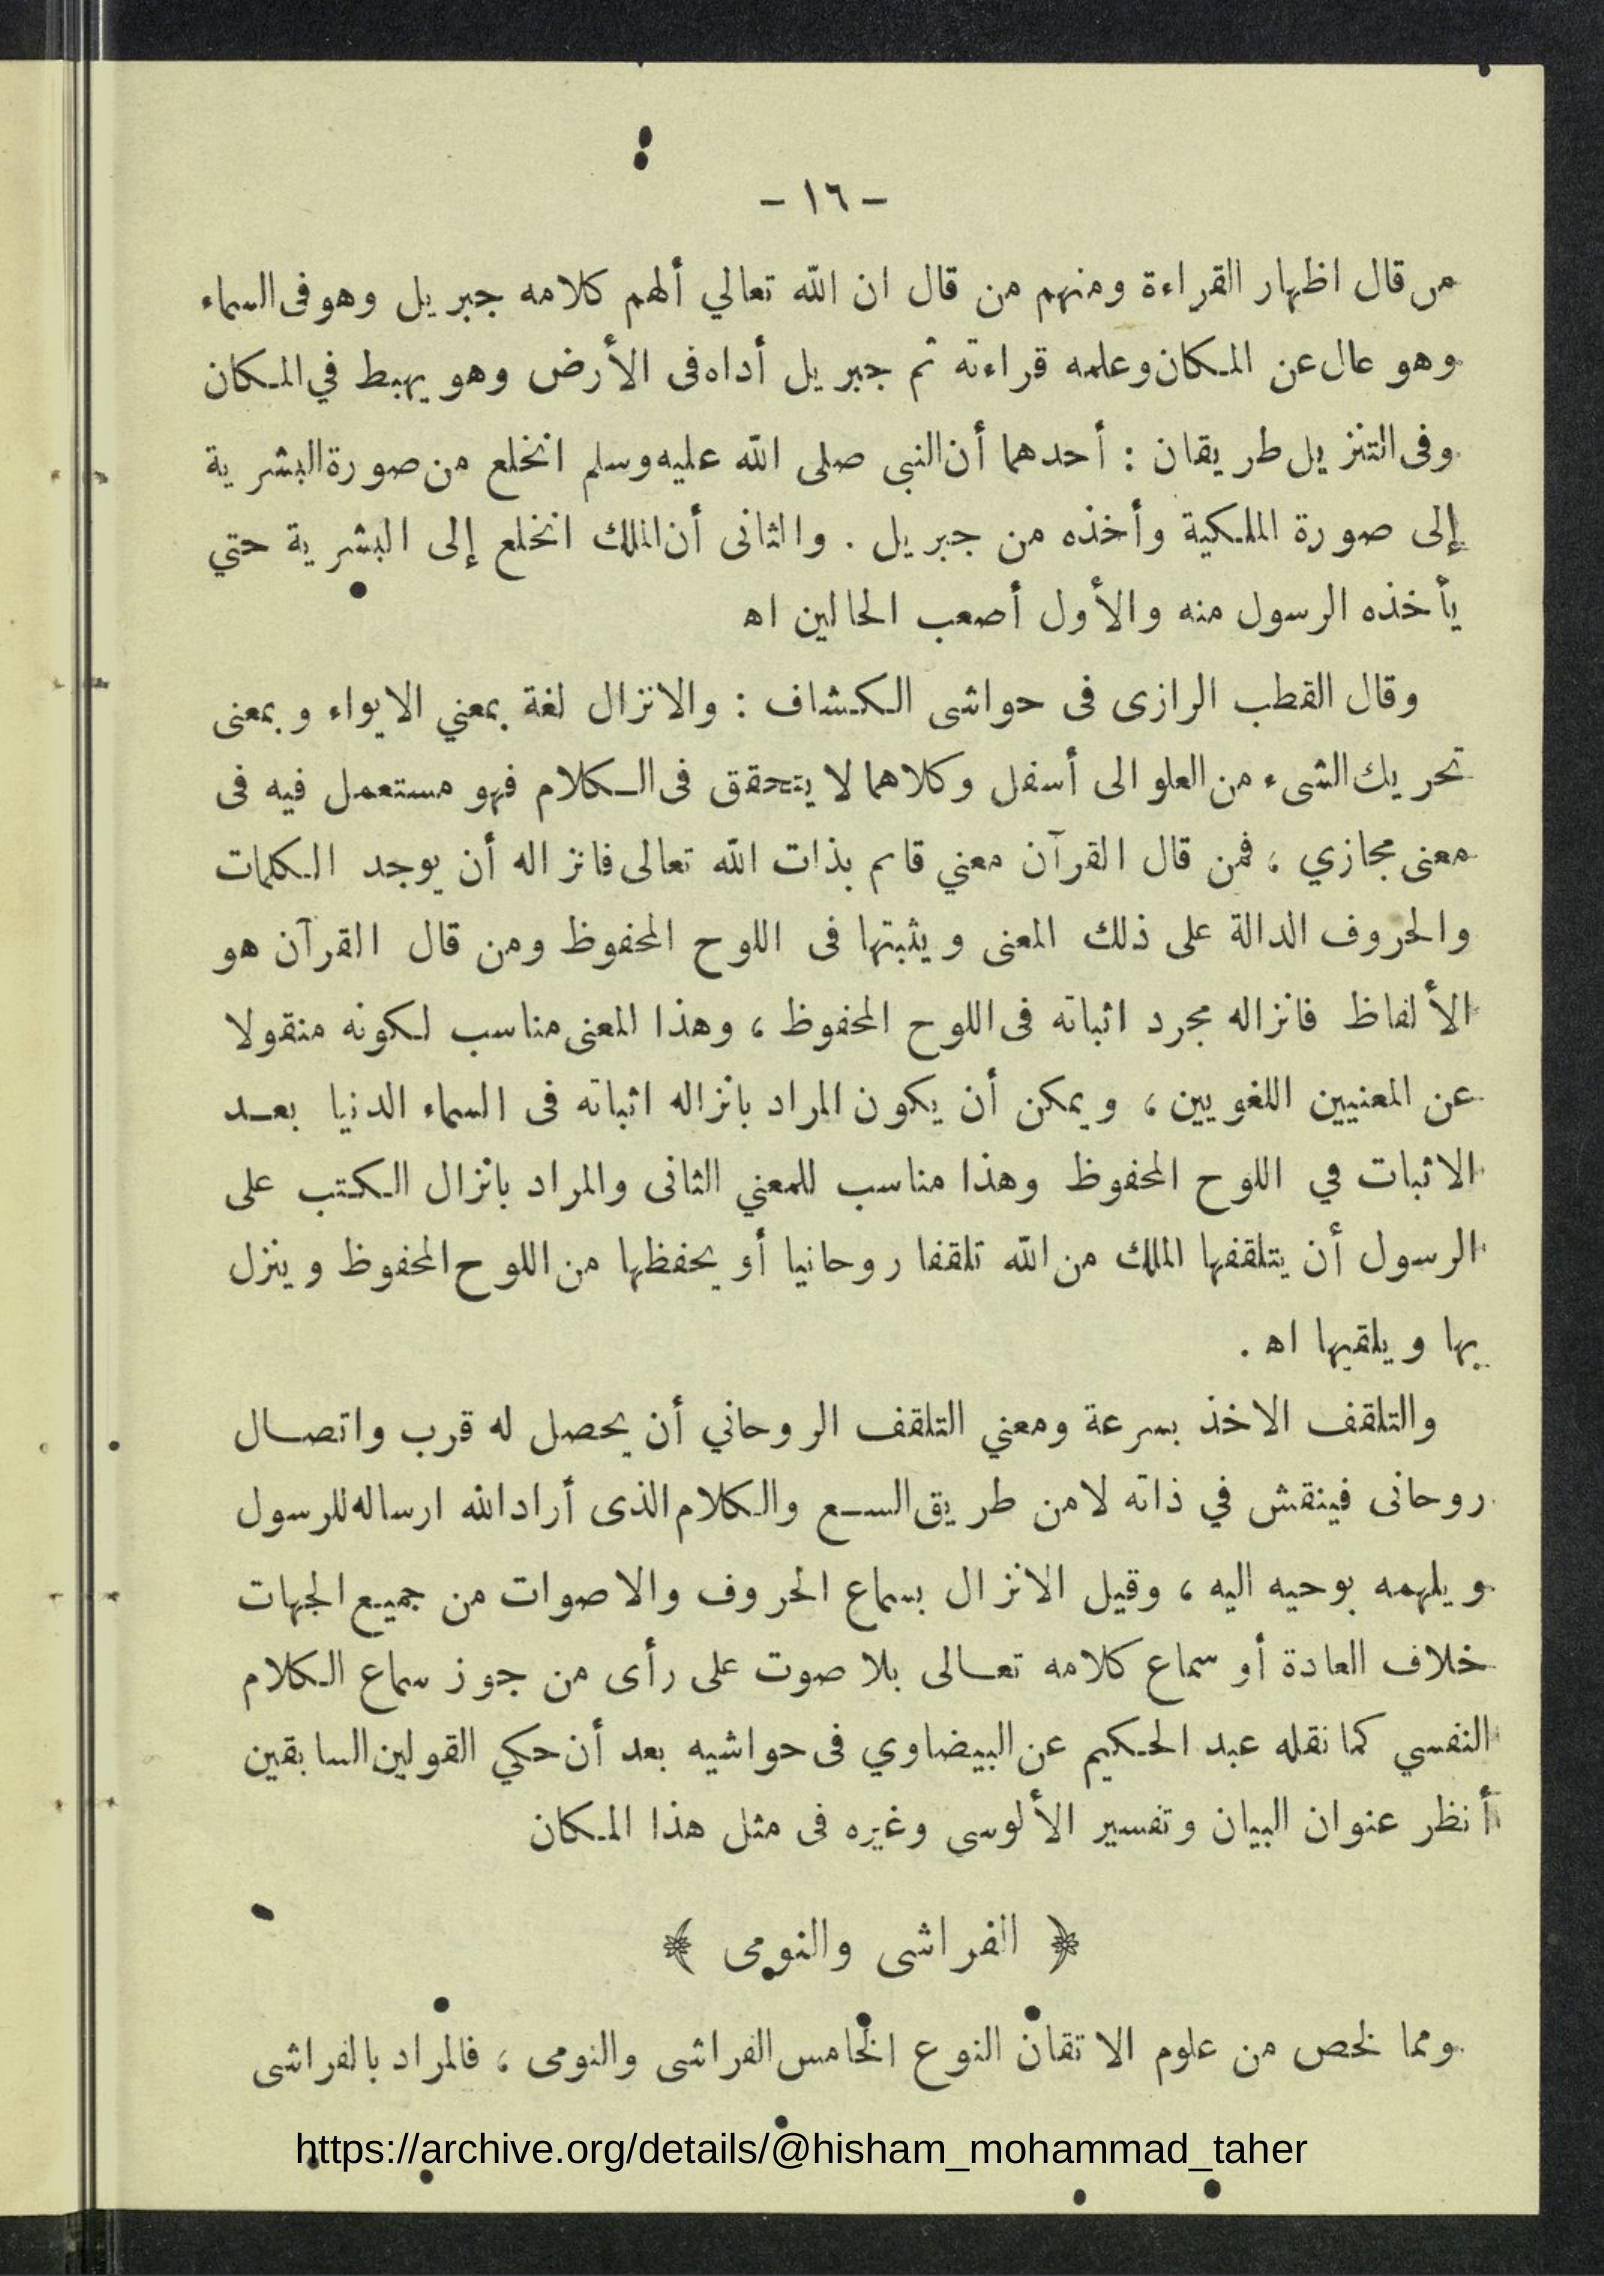 – ١٦ –
من قال اظهار القراءة ومنهم من قال ان الله تعالي ألهم كلامه جبريل وهو فى السماء
وهو عال عن المكان وعلمه قراءته ثم جبريل أداه فى الأرض وهو يهبط في المكان
وفى التنزيل طريقان : أحدهما أن النبى صلى الله عليه وسلم انخلع من صورة البشرية
إلى صورة الملكية وأخذه من جبريل . والثانى أن الملك انخلع إلى البشرية حتي
يأخذه الرسول منه والأول أصعب الحالين اه
وقال القطب الرازى فى حواشى الكشاف : والانزال لغة بمعني الايواء وبمعنى
تحريك الشىء من العلو الى أسفل وكلاهما لا يتحقق فى الكلام فهو مستعمل فيه فى
معنى مجازي ، فمن قال القرآن معني قائم بذات الله تعالى فانزاله أن يوجد الكلمات
والحروف الدالة على ذلك المعنى ويثبتها فى اللوح المحفوظ ومن قال القرآن هو
الألفاظ فانزاله مجرد اثباته فى اللوح المحفوظ ، وهذا المعنى مناسب لكونه منقولا
عن المعنيين اللغويين ، ويمكن أن يكون المراد بانزاله اثباته فى السماء الدنيا بعد
الاثبات في اللوح المحفوظ وهذا مناسب للمعني الثانى والمراد بانزال الكتب على
الرسول أن يتلقفها الملك من الله تلقفا روحانيا أو يحفظها من اللوح المحفوظ وينزل
بها ويلقيها اه .
والتلقف الاخذ بسرعة ومعني التلقف الروحاني أن يحصل له قرب واتصال
روحانى فينقش في ذاته لا من طريق السمع والكلام الذى أراد الله ارساله للرسول
ويلهمه بوحيه اليه ، وقيل الانزال بسماع الحروف والاصوات من جميع الجهات
خلاف العادة أو سماع كلامه تعالى بلا صوت على رأى من جوز سماع الكلام
النفسي كما نقله عبد الحكيم عن البيضاوي فى حواشيه بعد أن حكي القولين السابقين
أنظر عنوان البيان وتفسير الألوسى وغيره فى مثل هذا المكان
﴿ الفراشى والنومى ﴾
ومما لخص من علوم الاتقان النوع الخامس الفراشى والنومى ، فالمراد بالفراشى
https://archive.org/details/@hisham_mohammad_taher